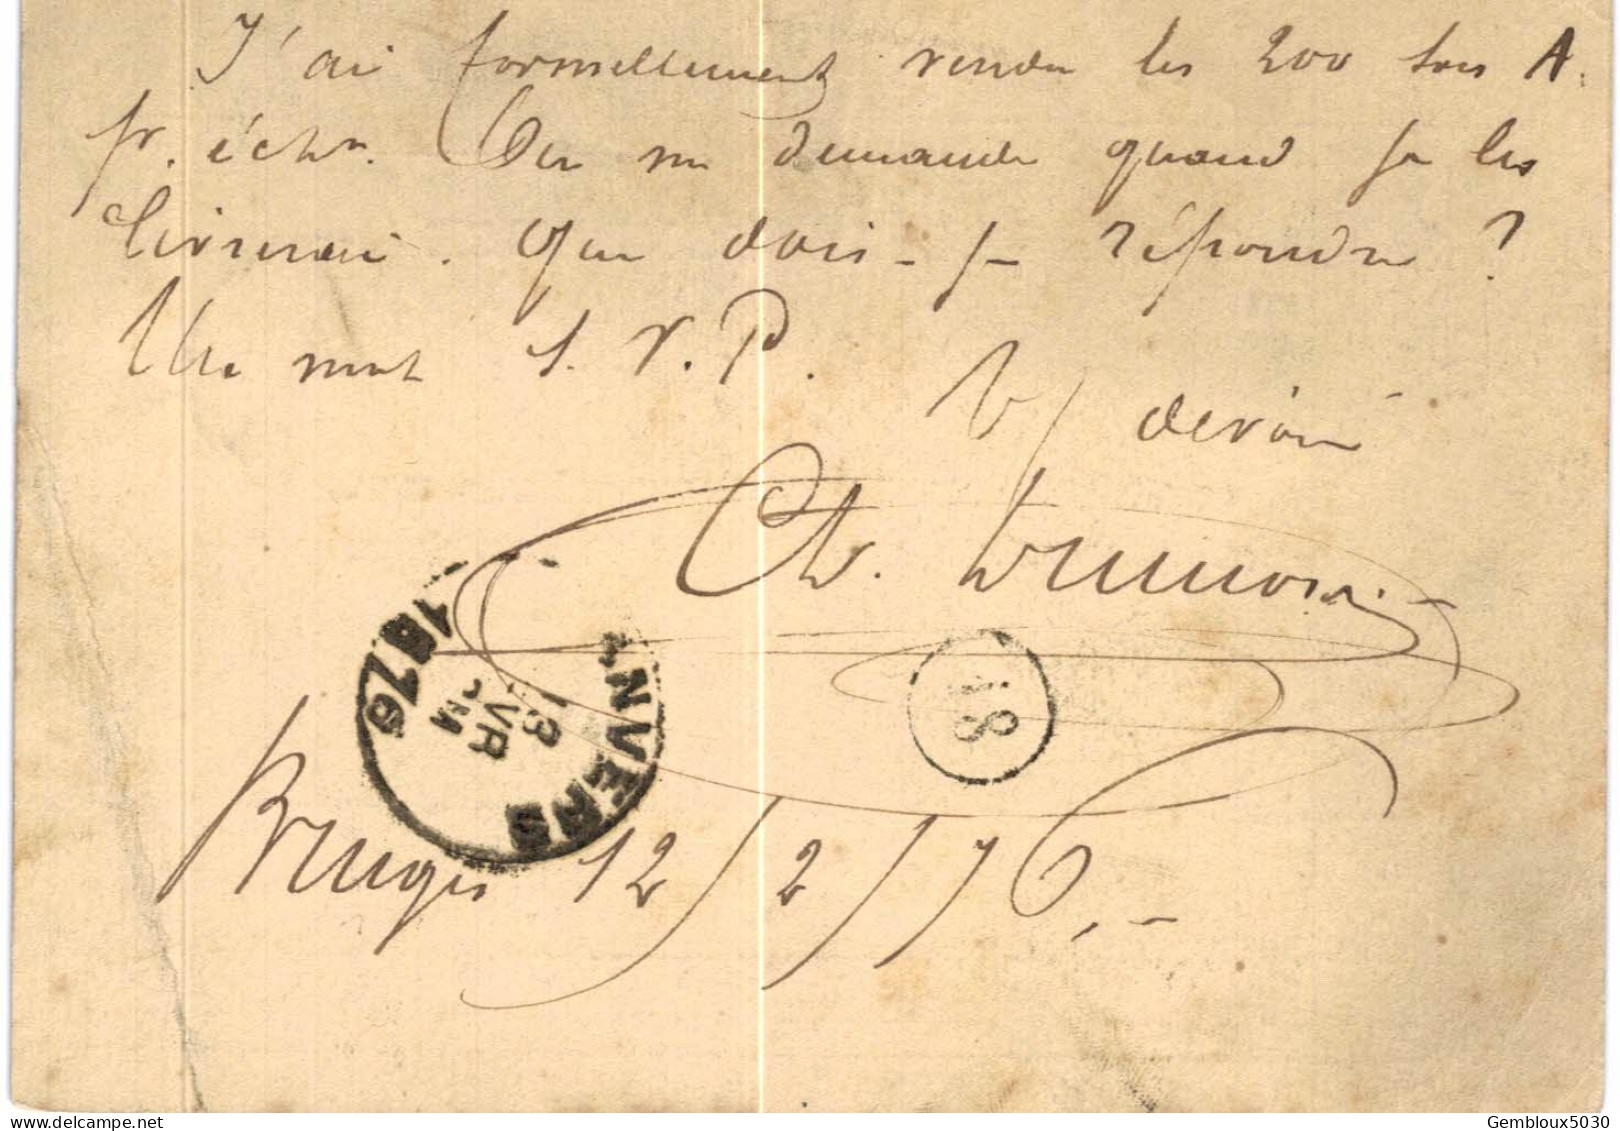 J'ai formellement vendu les 200 sacs A.
fr. échn. On me demande quand je les
livrerai. Que dois-je répondre ?
Un mot S. V. P.
V/ dévoué
Ch.
ANVERS
13
1876
18
Bruges 12/2/76,-
Gembloux5030